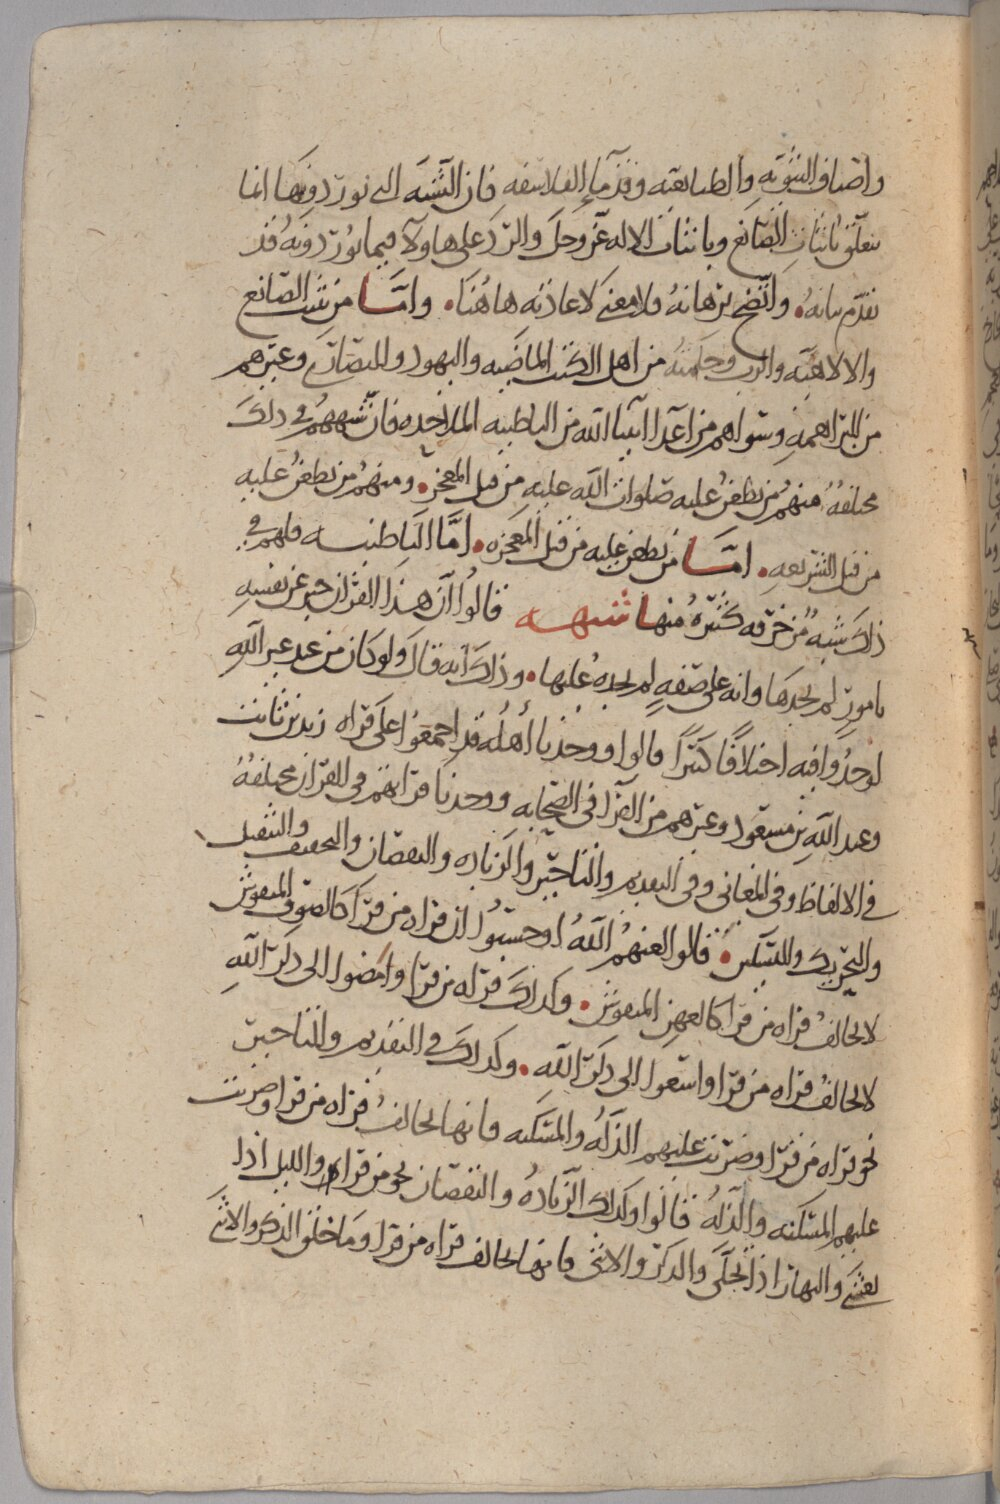 واصناف الثنويه والطبايعيه وقدمآء الفلاسفه فان الشبه التي نوردونها انما
يتعلق باثبات الصانع وباثبات الاله عز وجل والرد على هاولآء فيما يوردونه قد
تقدم بيانه. واتضح برهانه فلا معنى لاعادته هاهنا. وامّا من يثبت الصانع
والالاهيه والرب وحكمته من اهل الكتب الماضيه واليهود والنصارى وغيرهم
من البراهمه وسواهم من اعدآ انبيآ الله من الباطنيه الملاحده فان شبههم في ذلك
مختلفة منهم من يطعن عليه صلوات الله عليه من قبل المعجز. ومنهم من يطعن عليه
من قبل الشريعه. امّا من يطعن عليه من قبل المعجزه. امّا الباطنيه فلهم في
ذلك شبه مزخرفه كثيرة منها شبهه قالوا ان هذا القران خبر عن نفسه
بامور لم نجدها وانه على صفه لم نجده عليها. وذلك انه قال ولو كان من عند غير الله
لوجدوا فيه اختلافا كثيرا قالوا ووجدنا أهله قد اجمعوا على قراه زيد بن ثابت
وعبد الله بن مسعود وغيرهم من القرآ في الصحابه ووجدنا قرآاتهم في القران مختلفة
في الالفاظ وفي المعاني وفي التقديم والتاخير والزياده والنقصان والتخفيف والتثقيل
والتحريك والتسكين. قالوا لعنهم الله اوحسبوا ان قراه من قرا كالصوف المنفوش
لا تخالف قراه من قرا كالعهن المنفوش. وكذلك قراه من قرا وامضوا الى ذكر الله
لا تخالف قراه من قرا واسعوا الى ذكر الله. وكذلك في التقديم والتاخير
نحو قراه من قرا وضربت عليهم الذله والمسكنه فانها تخالف قراه من قرا وضربت
عليهم المسكنه والذله قالوا وكذلك الزيادة والنقصان نحو من قرا والليل اذا
يغشى والنهار اذا تجلى والذكر والانثى فانها تخالف قراه من قرا وما خلق الذكر والانثى